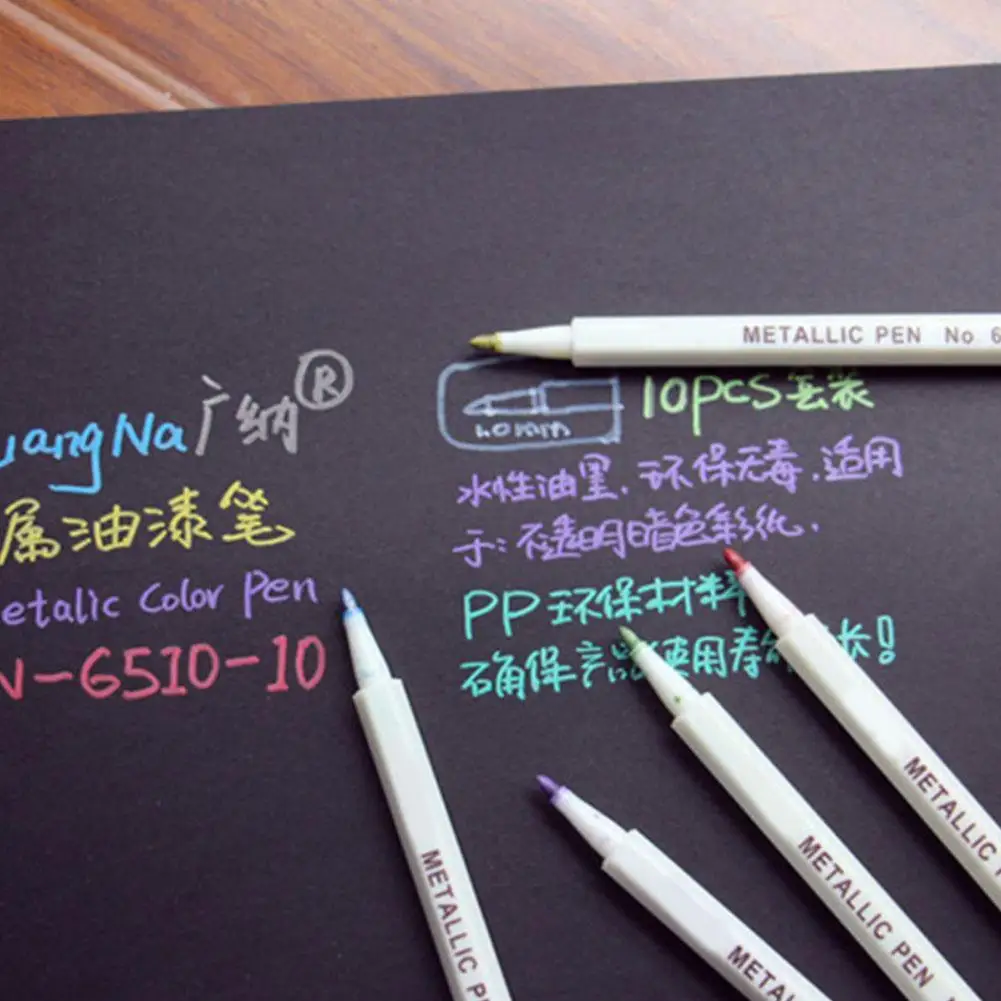 uangNa广纳®
属油漆笔
etalic Color Pen
N-6510-10
METALLIC PEN No 6
1.0mm
10pcs套装
水性油墨.环保无毒.适用
于:不透明暗色彩纸.
PP环保材料
确保产品使用寿长!
METALLIC P
METALLIC PEN
METALLIC
METALLIC